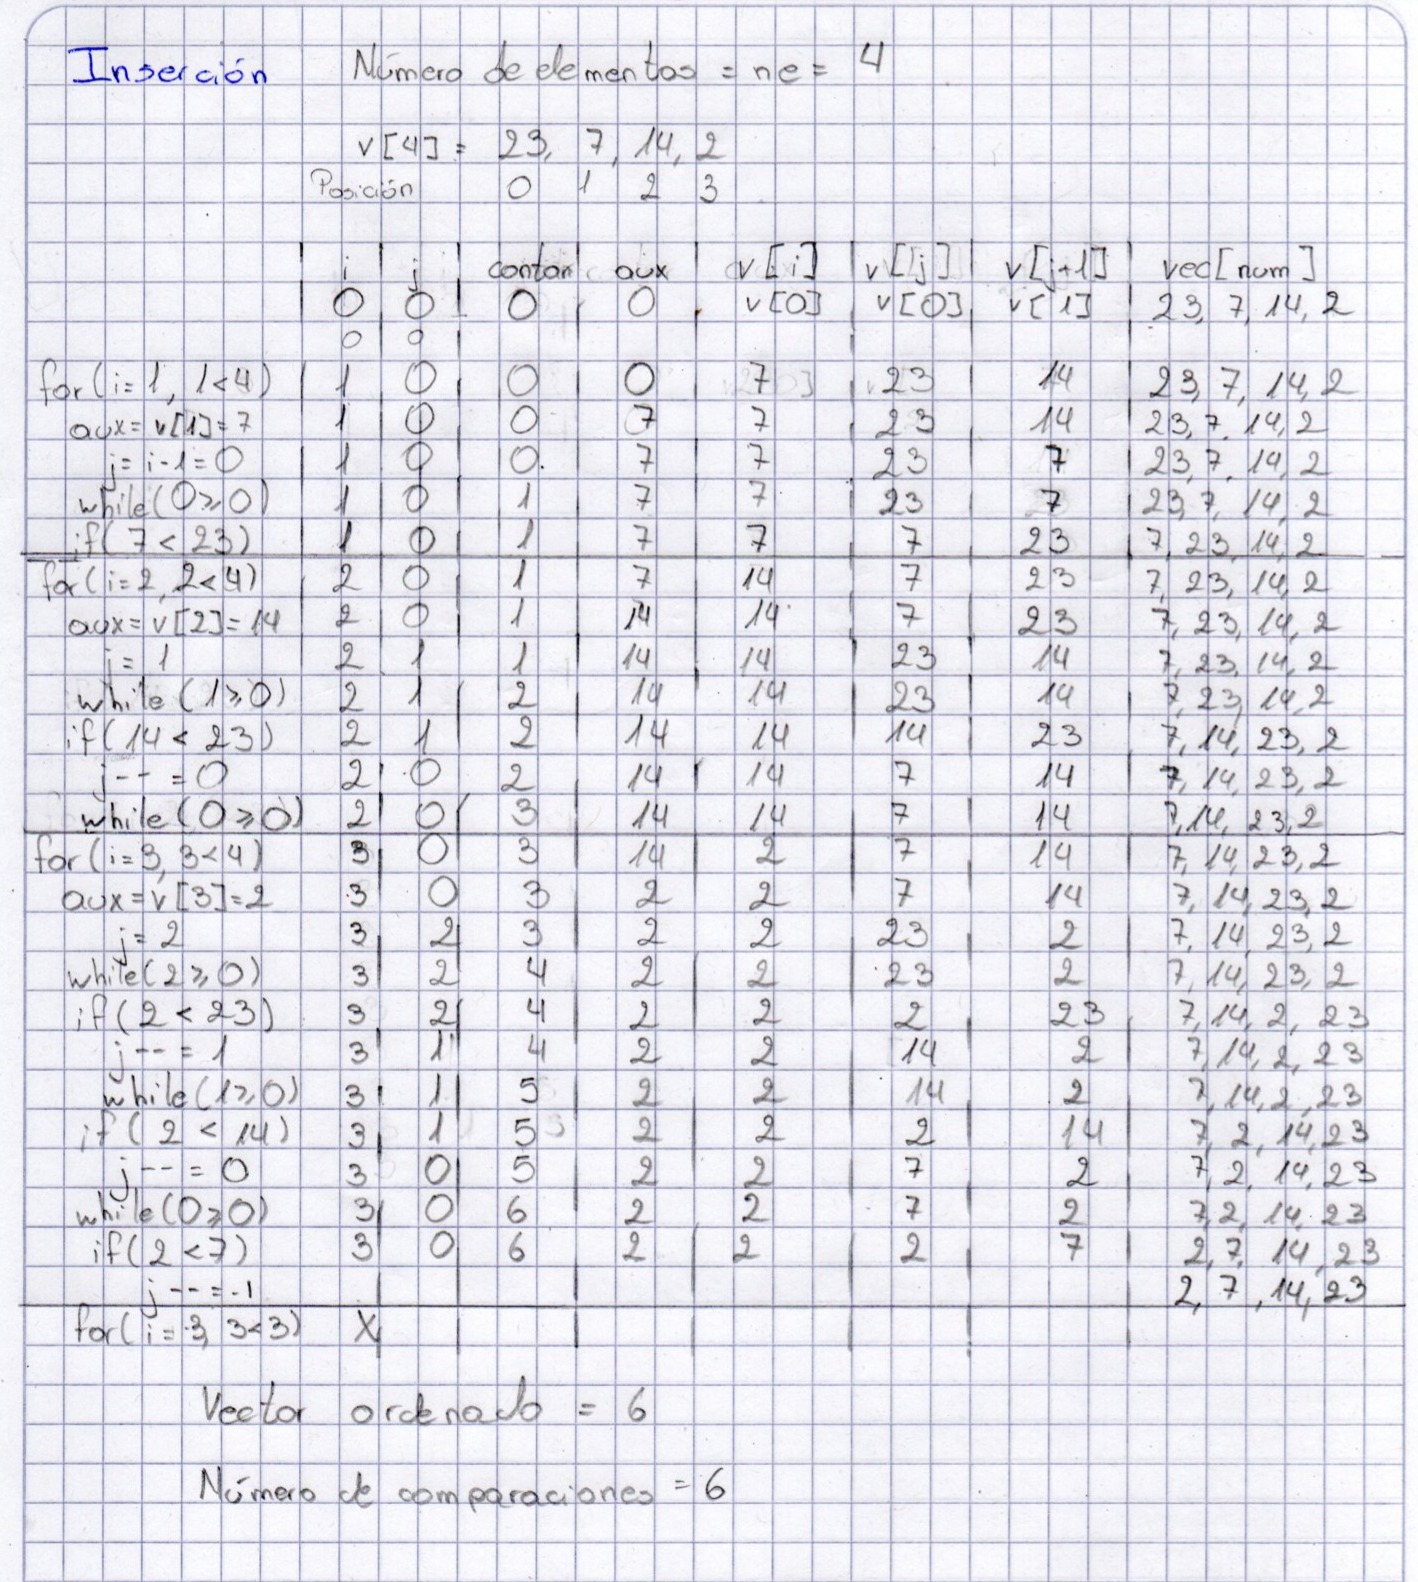 Inserción Número de elementos = ne = 4
v[4] = 23, 7, 14, 2
Posición 0 1 2 3
i j contar aux v[i] v[j] v[j+1] vec[num]
0 0 0 0 v[0] v[0] v[1] 23, 7, 14, 2
0 0
for(i=1, 1<4) 1 0 0 0 7 23 14 23, 7, 14, 2
aux=v[1]=7 1 0 0 7 7 23 14 23, 7, 14, 2
j=i-1=0 1 0 0 7 7 23 7 23, 7, 14, 2
while(0≥0) 1 0 1 7 7 23 7 23, 7, 14, 2
if(7<23) 1 0 1 7 7 7 23 7, 23, 14, 2
for(i=2, 2<4) 2 0 1 7 14 7 23 7, 23, 14, 2
aux=v[2]=14 2 0 1 14 14 7 23 7, 23, 14, 2
j=1 2 1 1 14 14 23 14 7, 23, 14, 2
while(1≥0) 2 1 2 14 14 23 14 7, 23, 14, 2
if(14<23) 2 1 2 14 14 14 23 7, 14, 23, 2
j--=0 2 0 2 14 14 7 14 7, 14, 23, 2
while(0≥0) 2 0 3 14 14 7 14 7, 14, 23, 2
for(i=3, 3<4) 3 0 3 14 2 7 14 7, 14, 23, 2
aux=v[3]=2 3 0 3 2 2 7 14 7, 14, 23, 2
j=2 3 2 3 2 2 23 2 7, 14, 23, 2
while(2≥0) 3 2 4 2 2 23 2 7, 14, 23, 2
if(2<23) 3 2 4 2 2 2 23 7, 14, 2, 23
j--=1 3 1 4 2 2 14 2 7, 14, 2, 23
while(1≥0) 3 1 5 2 2 14 2 7, 14, 2, 23
if(2<14) 3 1 5 2 2 2 14 7, 2, 14, 23
j--=0 3 0 5 2 2 7 2 7, 2, 14, 23
while(0≥0) 3 0 6 2 2 7 2 7, 2, 14, 23
if(2<7) 3 0 6 2 2 2 7 2, 7, 14, 23
j--=-1 2, 7, 14, 23
for(i=3, 3<3) X
Vector ordenado = 6
Número de comparaciones = 6